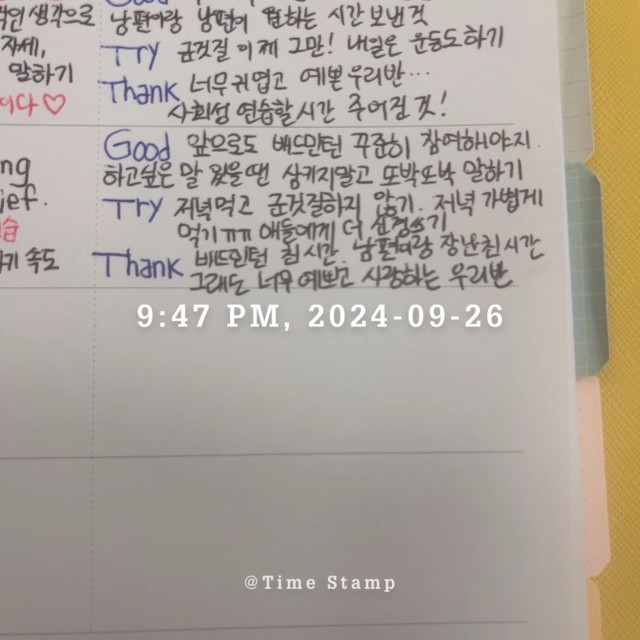 적인 생각으로
자세,
말하기
이다♡
ng
ief.
습
기 속도
Good
남편이랑 남편이 원하는 시간 보낸 것
Try 군것질 이제 그만! 내일은 운동도 하기
Thank 너무 귀엽고 예쁜 우리반...
사회성 연습할 시간 주어진 것!
Good 앞으로도 배드민턴 꾸준히 참여해야지.
하고싶은 말 있을땐 삼키지말고 또박또박 말하기
Try 저녁먹고 군것질하지 않기. 저녁 가볍게
먹기ㅠㅠ 애들에게 더 신경쓰기
Thank 배드민턴 친 시간. 남편이랑 장난친 시간
그래도 너무 예쁘고 사랑하는 우리반
9:47 PM, 2024-09-26
@Time Stamp